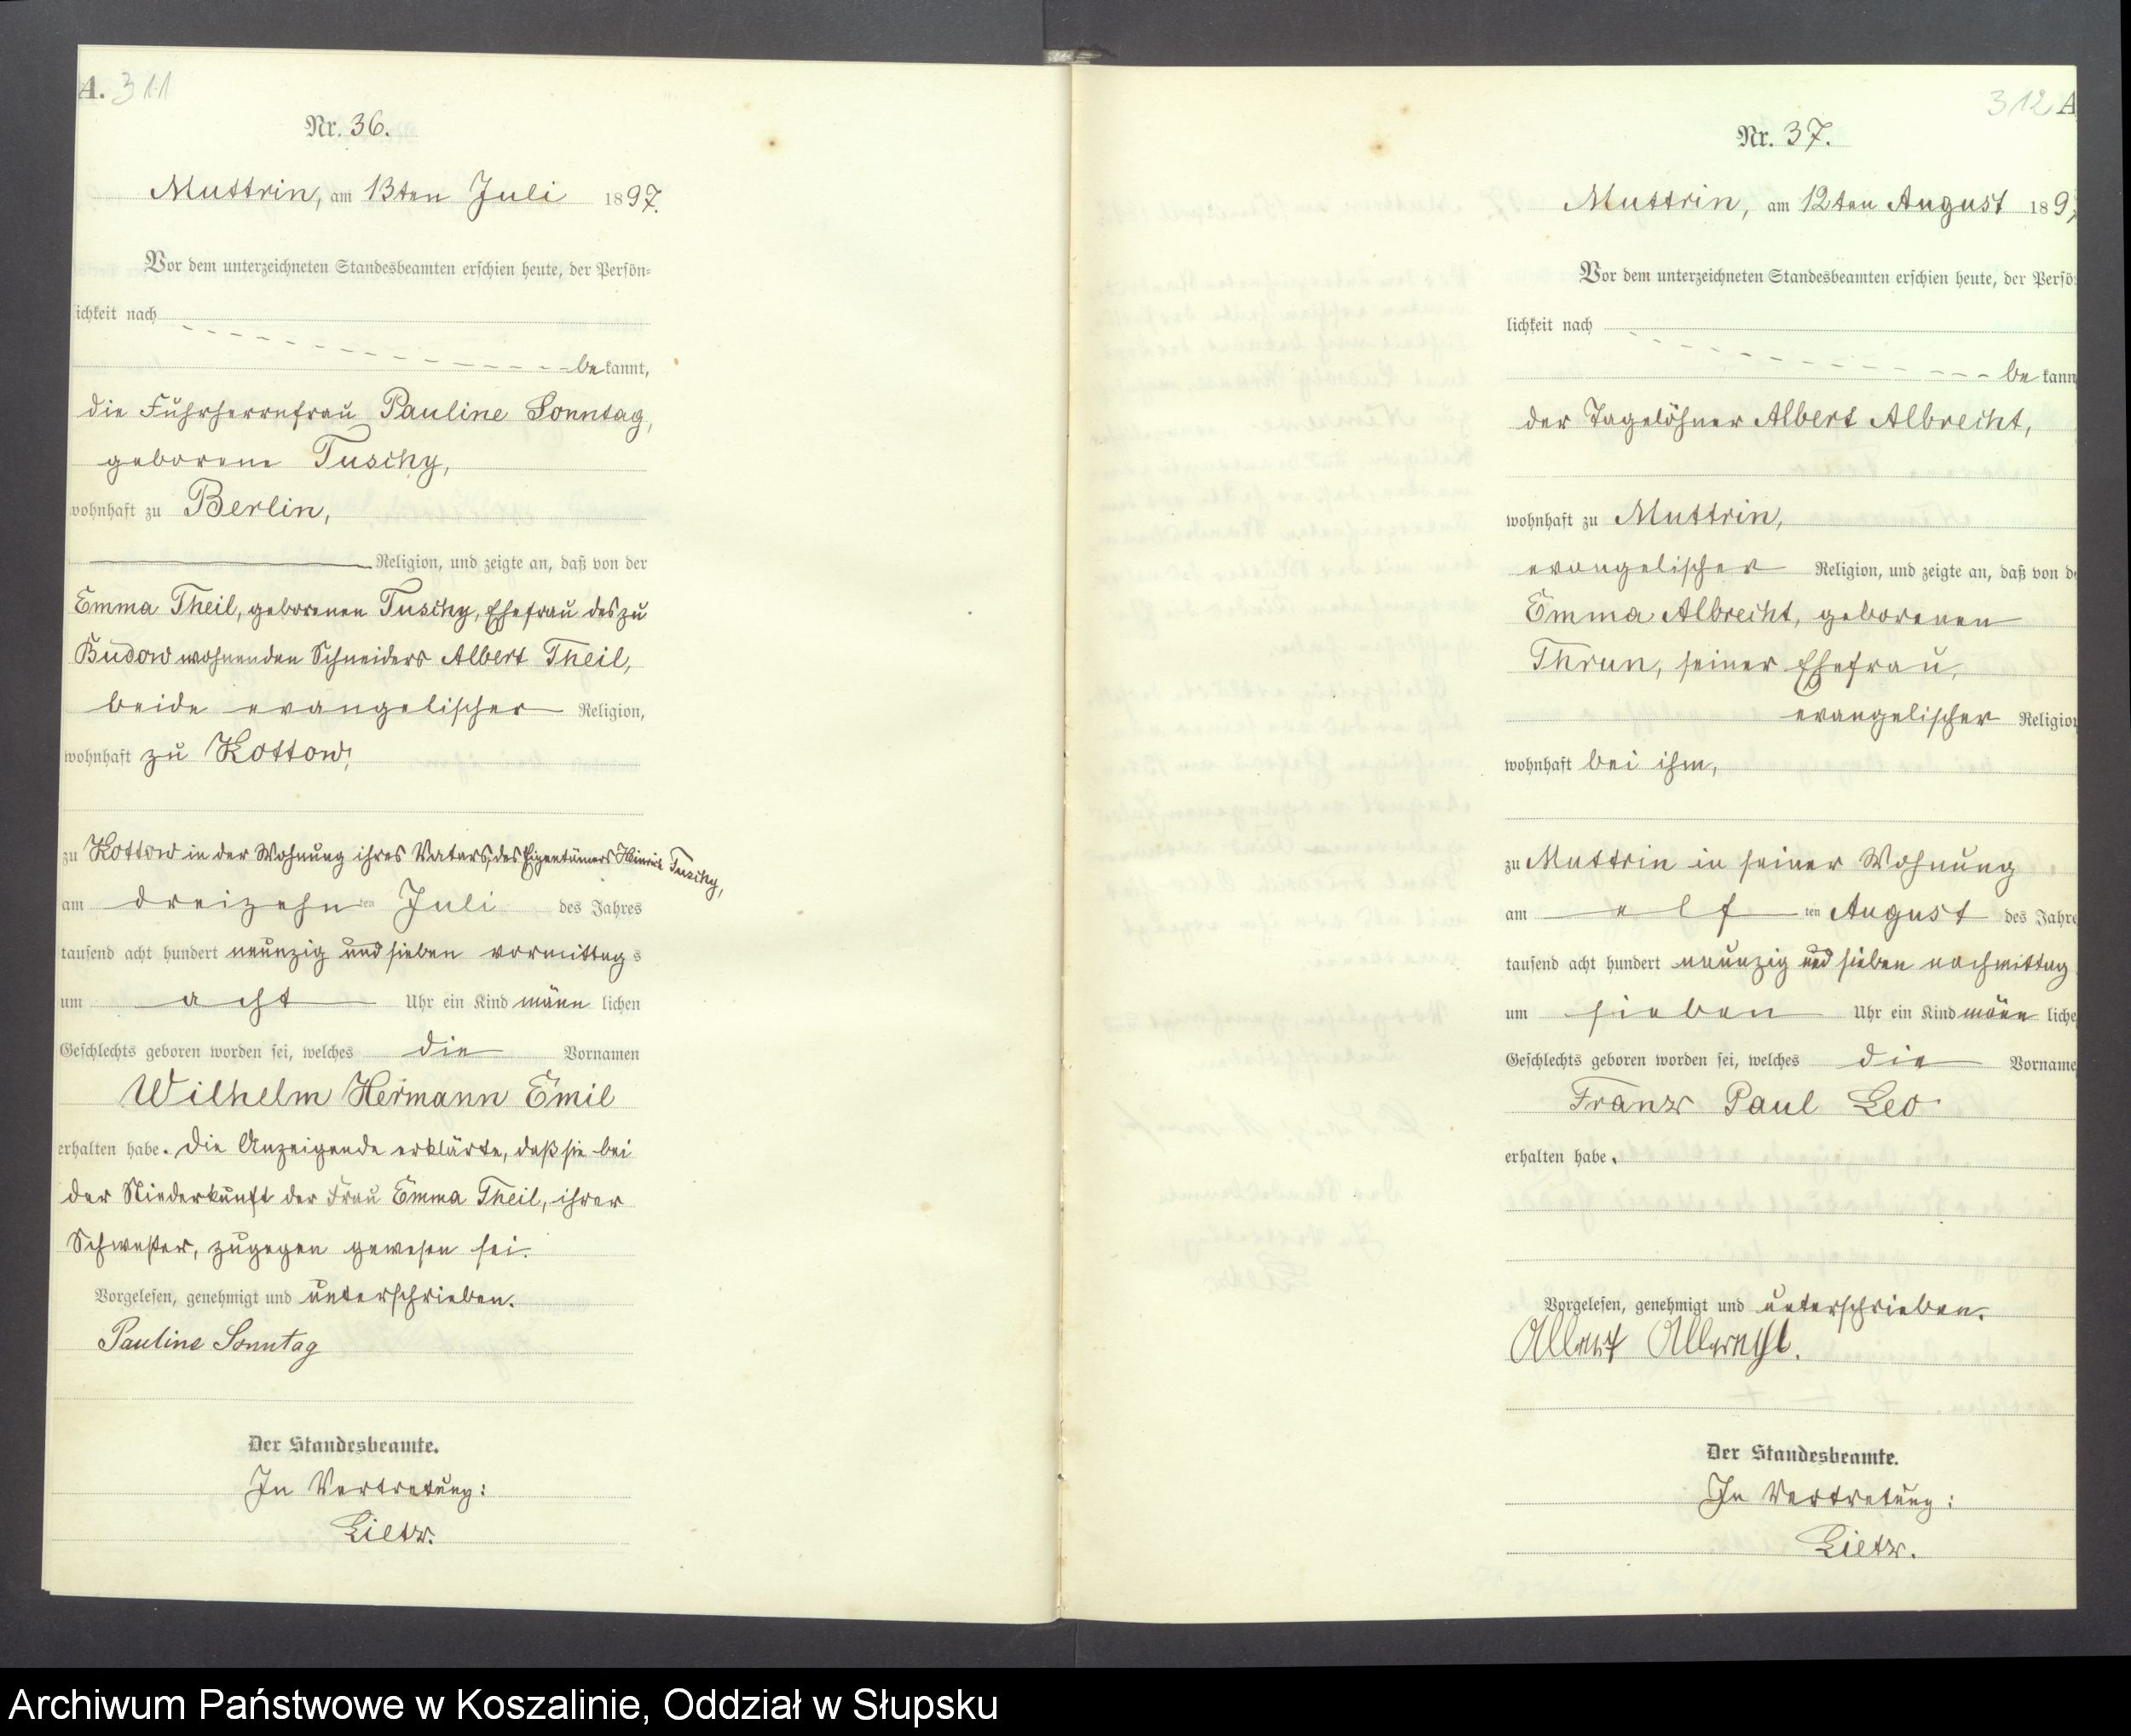 A. 311
Nr. 36.
Muttrin, am 13ten Juli 1897.
Vor dem unterzeichneten Standesbeamten erschien heute, der Persön-
ichkeit nach
bekannt,
die Fuhrherrnfrau Pauline Sonntag,
geborene Tuschy,
wohnhaft zu Berlin,
Religion, und zeigte an, daß von der
Emma Theil, geborenen Tuschy, Ehefrau des zu
Budow wohnenden Schneiders Albert Theil,
beide evangelischer Religion,
wohnhaft zu Kottow,
zu Kottow in der Wohnung ihres Vaters, des Eigentümers Heinrich Tuschy,
am dreizehn ten Juli des Jahres
tausend acht hundert neunzig und sieben vormittags
um acht Uhr ein Kind männlichen
Geschlechts geboren worden sei, welches die Vornamen
Wilhelm Hermann Emil
erhalten habe. Die Anzeigende erklärte, daß sie bei
der Niederkunft der Frau Emma Theil, ihrer
Schwester, zugegen gewesen sei.
Vorgelesen, genehmigt und unterschrieben.
Pauline Sonntag
Der Standesbeamte.
In Vertretung:
Lietz.
312 A
Nr. 37.
Muttrin, am 12ten August 1897
Vor dem unterzeichneten Standesbeamten erschien heute, der Persö
lichkeit nach
bekann
der Tagelöhner Albert Albrecht,
wohnhaft zu Muttrin,
evangelischer Religion, und zeigte an, daß von de
Emma Albrecht, geborenen
Thrun, seiner Ehefrau,
evangelischer Religion
wohnhaft bei ihm,
zu Muttrin in seiner Wohnung
am elf ten August des Jahre
tausend acht hundert neunzig und sieben nachmittag
um sieben Uhr ein Kind männliche
Geschlechts geboren worden sei, welches die Vorname
Franz Paul Leo
erhalten habe.
Vorgelesen, genehmigt und unterschrieben.
Albert Albrecht.
Der Standesbeamte.
In Vertretung:
Lietz.
Archiwum Państwowe w Koszalinie, Oddział w Słupsku